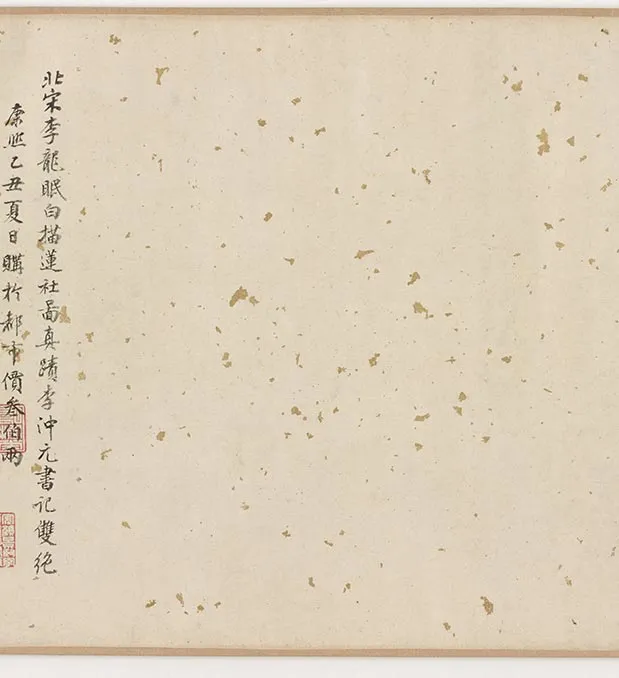 北宋李龍眠白描蓮社啚真蹟李沖元書記雙絕
康熙乙丑夏日購於都市價叁伯兩